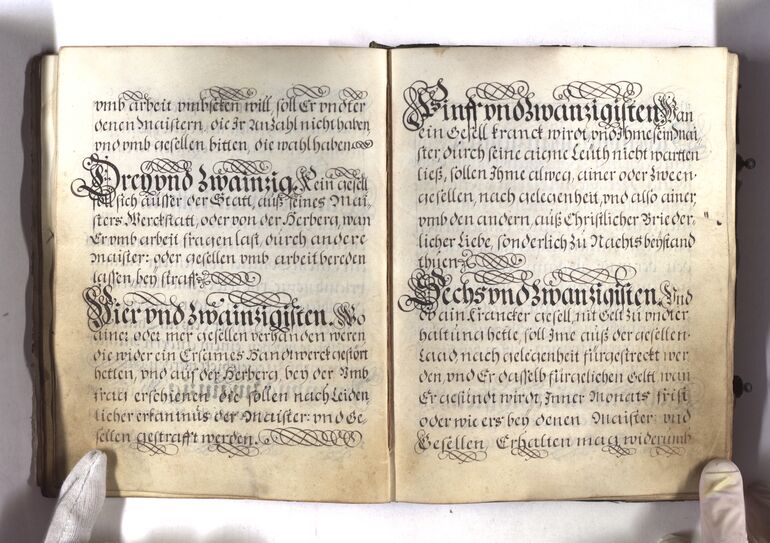 vmb arbeit vmbsehen will, soll Er vndter
denen Maistern, die Ir Anzahl nicht haben,
vnd vmb gesellen bitten, die wahl haben.
Dreÿ vnd Zwainzig. Kein gesell
soll sich aüsser der Statt, aüß seines Mai,
sters Werckstatt, oder von der Herberg, wan
Er vmb arbeit fragen last, dürch andere
Maister: oder gesellen vmb arbeit bereden
lassen, beÿ straff.
Vier vnd Zwainzigisten. Wo
ainer oder mer gesellen verhanden weren
die wider ein Ersames Handtwerck gehört
hetten, vnd aüf der Herberg, beÿ der Vmb,
frag erschienen die sollen nach Leiden,
licher erkantnüs der Maister: vnd Ge,
sellen gestrafft werden.
Fünff vnd Zwanzigisten. Wan
ein Gesell kranck wirdt, vnd Ihme sein Mai,
ster, dürch seine aigne Leüth nicht wartten
ließ, sollen Ihme alweg, ainer oder Zween
gesellen, nach gelegenheit, vnd also ainer,
vmb den andern, aüß Christlicher Brieder,
licher Liebe, sonderlich Zü Nachts beÿstand
thüen.
Sechs vnd Zwanzigisten. Vnd
so ain Krancker gesell, nit Gelt Zü vndter
haltüng hette, soll Ime aüß der gesellen
Laad, nach gelegenheit fürgestreckt wer,
den, vnd Er dasselb fürgelichen Geltt, wan
Er gesündt wirdt, Inner Monats frist
oder wie ers beÿ denen Maister: vnd
Gesellen Erhalten mag, widerumb